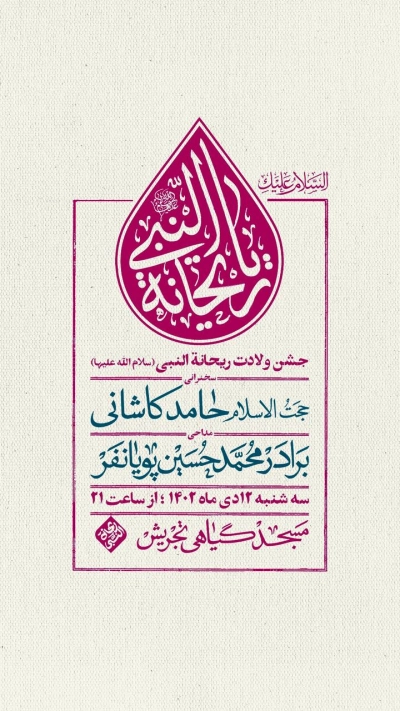 السَّلامُ عَلَيكِ
یا ریحانة النَّبي
جشن ولادت ریحانة النبی (سلام الله علیها)
سخنرانی
حجتُ الاسلام حامد کاشانی
مداحی
برادر محمد حسین پویانفر
سه شنبه ۱۲ دی ماه ۱۴۰۲ ؛ از ساعت ۲۱
مسجد گیاهی تجریش